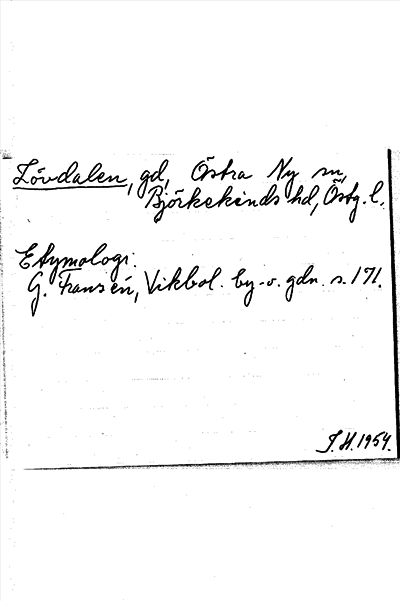 Lövdalen, gd, Östra Ny sn,
Björkekinds hd, Östg. l.
Etymologi:
G. Franzén, Vikbol. by- o. gdn. s. 171.
S.H. 1954.